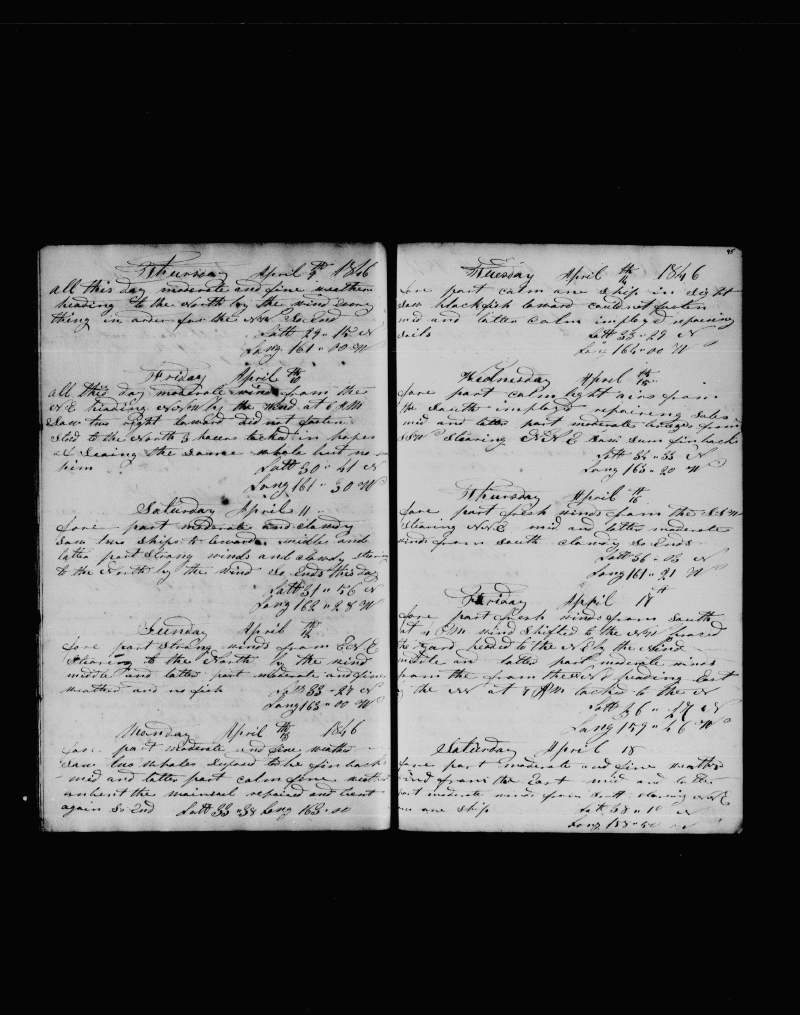 Thursday April 9th 1846
all this day moderate and fine weather
heading to the North by the wind
thing in order for the NW So End
Latt 29 " 15 N
Long 161 " 00 W
Friday April 10th
all this day moderate wind from the
NE heading by the wind at 6 AM
Saw two right leward did not fasten
Stod to the North 3 hours tacked in hopes
of Seaing the Same whale but no
him
Latt 30 " 41 N
Long 161 " 30 W
Saturday April 11
fore part moderate and clowdy
Saw two Ships to leward middle and
latter part Strong winds and clowdy
to the North by the wind So Ends this day
Latt 31 " 56 N
Long 162 " 28 W
Sunday April 12th
fore part Strong winds from ENE
Stearing to the North by the wind
middle and latter part moderate and fine
weather and no fish Latt 33 " 27 N
Long 163 " 00 W
Monday April 13th 1846
fore part moderate and fine weather
Saw two whales Suposed to be fin backs
mid and latter part calm fine weather
unbent the mainsail repaired and bent
again So End Latt 33 " 38 Long 163 " 00
95
Tuesday April 14th 1846
fore part calm one Ship in Sight
Saw blackfish leward could not fasten
mid and latter calm imployd reparing
Sails Latt 33 " 29 N
Long 164 " 00 W
Wednesday April 15th
fore part calm light airs from
the South imployd repairing Sales
mid and latter part moderate from
SSW Stearing NNE Saw Sum fin backs
Latt 34 " 33 N
Long 163 " 20 W
Thursday April 16th
fore part fresh winds from the SSW
Stearing NNE mid and latter moderate
winds from South clowdy So Ends
Latt 36 " 03 N
Long 161 " 21 W
Friday April 17th
fore part fresh winds from South
at 4 PM wind Shifted to the NW braced
the yard headed to the NE by the Wind
middle and latter part moderate winds
from the from the NNE heading East
by the at 7 AM tacked to the N
Latt 36 " 47 N
Long 159 " 46 W
Saturday April 18
fore part moderate and fine weather
wind from the East mid and latter
part moderate winds from South Stearing NNE
one Ship Latt 38 " 10 N
Long 158 " 50 W